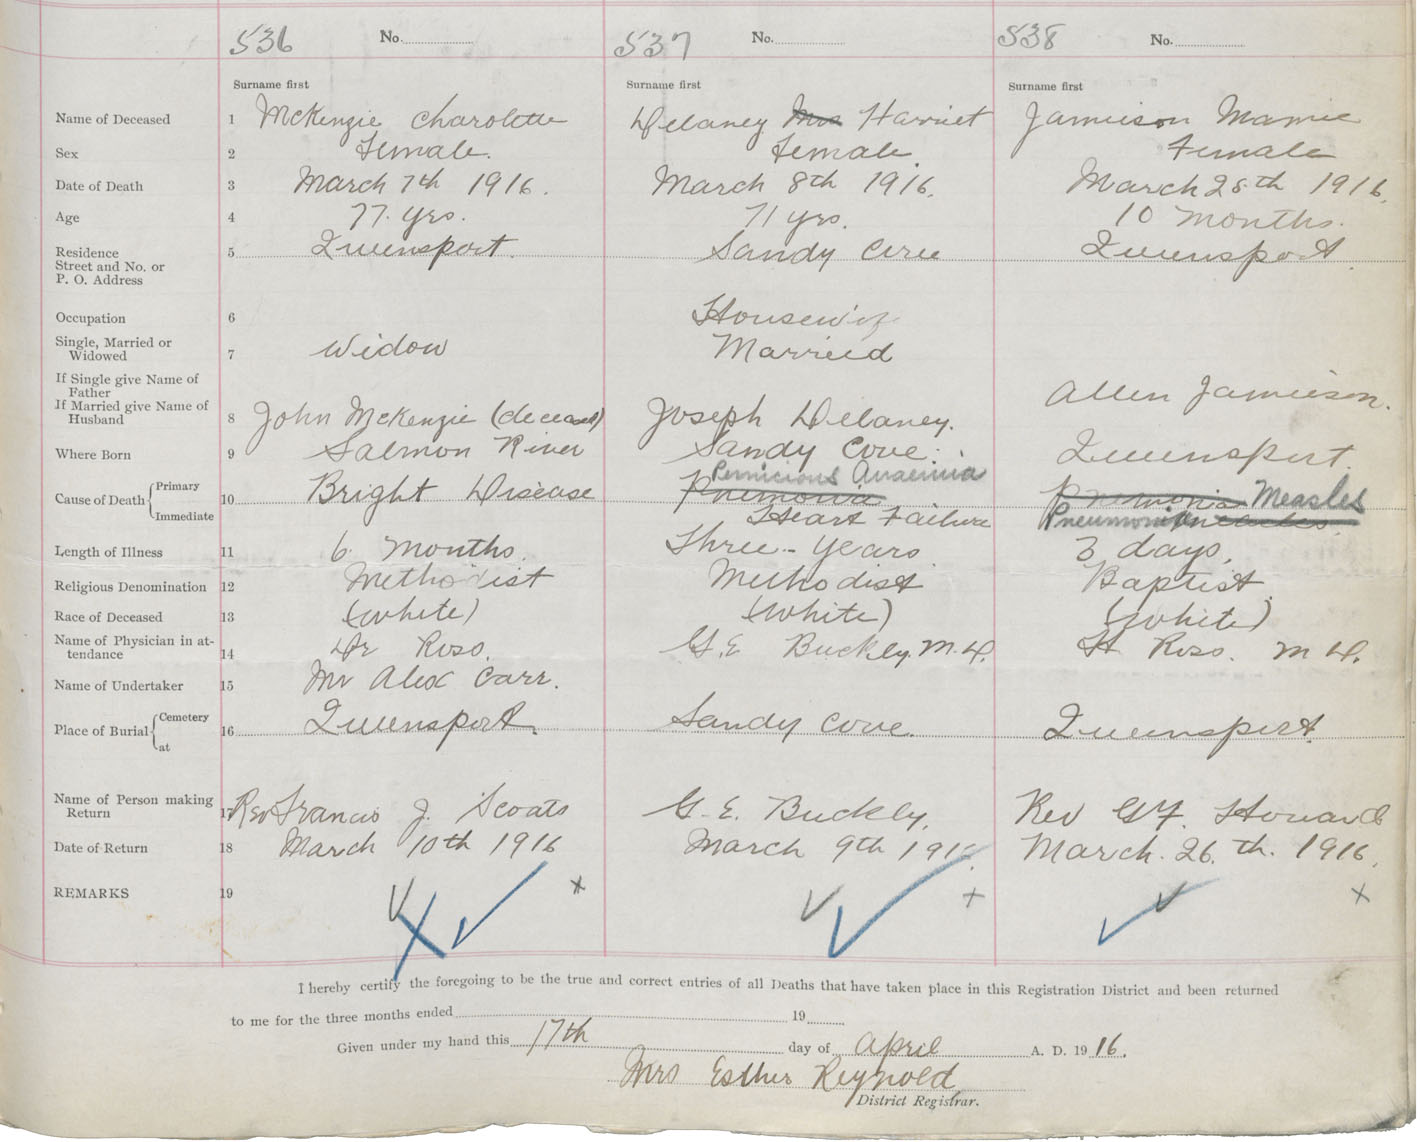 536 No. 537 No. 538 No.
Surname first Surname first Surname first
Name of Deceased 1 McKenzie Charolette Delaney Mrs Harriet Jamieson Mamie
Sex 2 Female. Female. Female
Date of Death 3 March 7th 1916. March 8th 1916. March 25th 1916.
Age 4 77 yrs. 71 yrs. 10 months.
Residence
Street and No. or
P. O. Address
5 Queensport. Sandy Cove Queensport.
Occupation 6 Housewife
Single, Married or
Widowed
7 Widow Married
If Single give Name of
Father
Allen Jamieson.
If Married give Name of
Husband
8 John McKenzie (deceased) Joseph Delaney.
Where Born 9 Salmon River Sandy Cove. Queensport.
Cause of Death Primary Immediate 10 Bright Disease
Pernicious Anaemia
Pnemonia
Heart Failure
Pnemonia Measles
Pneumonia measles
Length of Illness 11 6 months. Three years 3 days.
Religious Denomination 12 Methodist Methodist Baptist.
Race of Deceased 13 (white) (white) (white)
Name of Physician in at-
tendance
14 Dr Ross. G. E Buckley. M. D. H Ross. M D.
Name of Undertaker 15 Mr Alex Carr.
Place of Burial Cemetery at 16 Queensport. Sandy Cove. Queensport.
Name of Person making
Return
17 Rev Francis J. Scoats G. E. Buckley. Rev G Y. Howard
Date of Return 18 March 10th 1916 March 9th 1916. March. 26. th. 1916.
REMARKS 19
I hereby certify the foregoing to be the true and correct entries of all Deaths that have taken place in this Registration District and been returned
to me for the three months ended 19
Given under my hand this 17th day of April A. D. 19 16.
Mrs Esther Reynold
District Registrar.